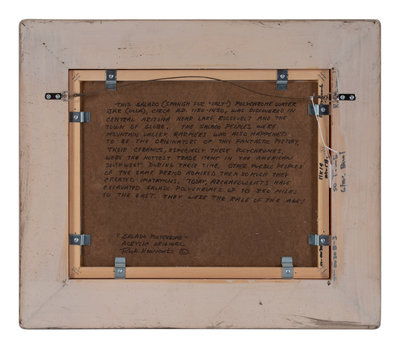 THIS SALADO (SPANISH FOR "SALTY") POLYCHROME WATER
JAR (OLLA), CIRCA AD. 1150-1450, WAS DISCOVERED IN
CENTRAL ARIZONA NEAR LAKE ROOSEVELT AND THE
TOWN OF GLOBE. THE SALADO PEOPLES WERE
MOUNTAIN VALLEY FARMERS WHO ALSO HAPPENED
TO BE THE ORIGINATORS OF THIS FANTASTIC POTTERY.
THEIR CERAMICS, ESPECIALLY THESE POLYCHROMES,
WERE THE HOTTEST TRADE ITEM IN THE AMERICAN
SOUTHWEST DURING THEIR TIME. OTHER PUEBLO PEOPLES
OF THE SAME PERIOD ADMIRED THEM SO MUCH THEY
CREATED IMITATIONS. TODAY, ARCHAEOLOGISTS HAVE
EXCAVATED SALADO POLYCHROMES UP TO 350 MILES
TO THE EAST. THEY WERE THE RAGE OF THE AGE!
"SALADO POLYCHROME"
ACRYLIC ORIGINAL
©